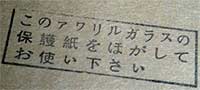 このアクリルガラスの
保護紙をほがして
お使い下さい